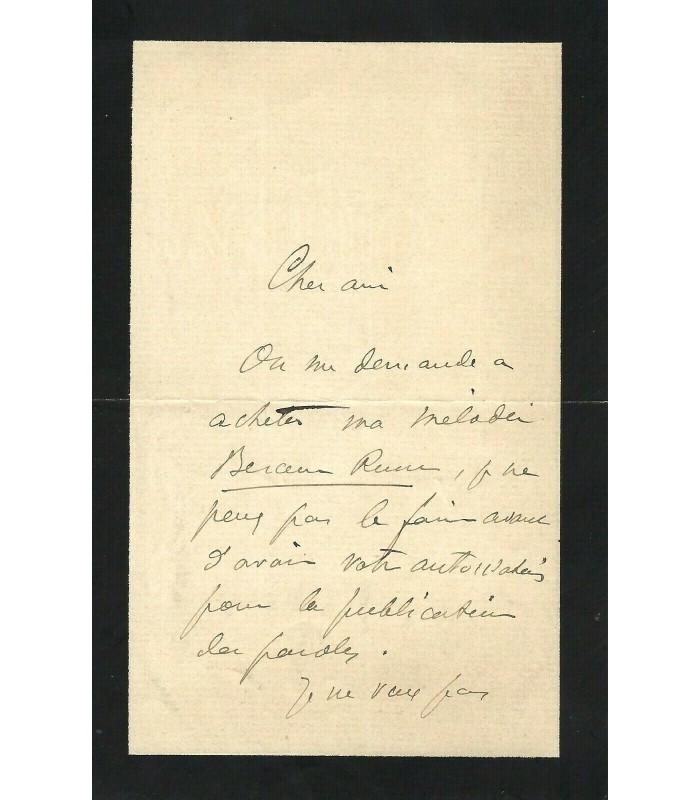 Cher ami
On me demande a
acheter ma mélodie
Berceuse Russe, je ne
peux pas le faire avant
d'avoir votre autorisation
pour la publication
des paroles.
Je ne veux pas